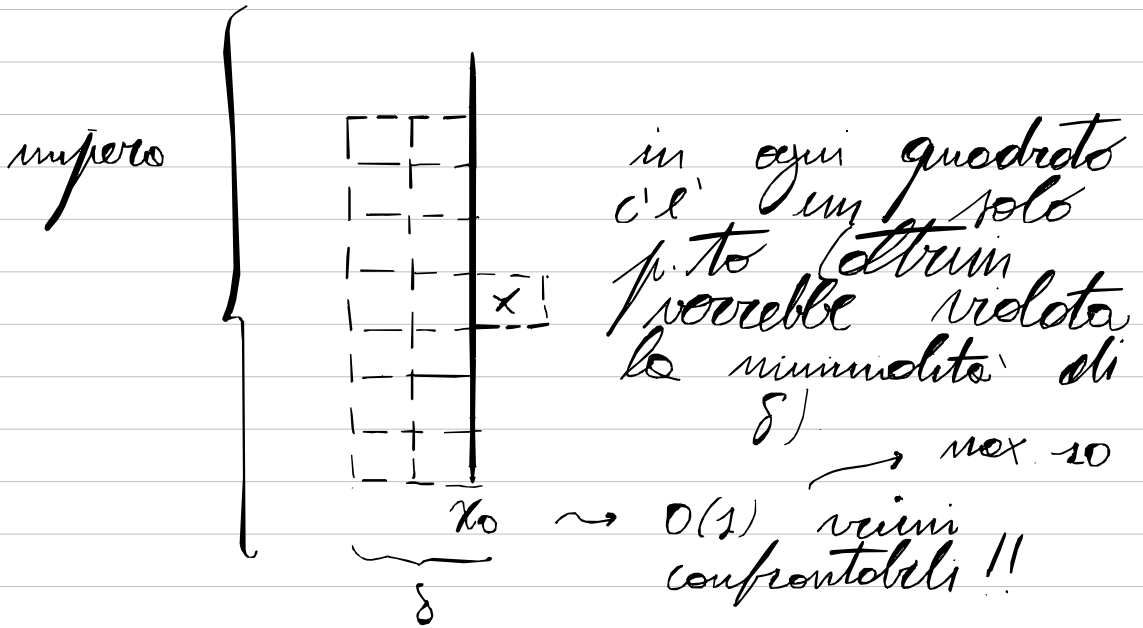 in ogni quadrato
c'è un solo
p.to (altrim
verrebbe violata
la minimalità di
δ)
max 10
x
x₀ ⇝ O(1) vicini
confrontabili !!
δ